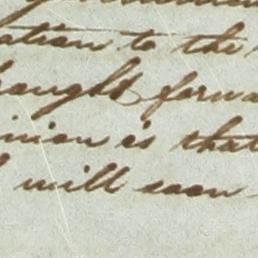 ation to the
rought forwa
inion is that
will soon